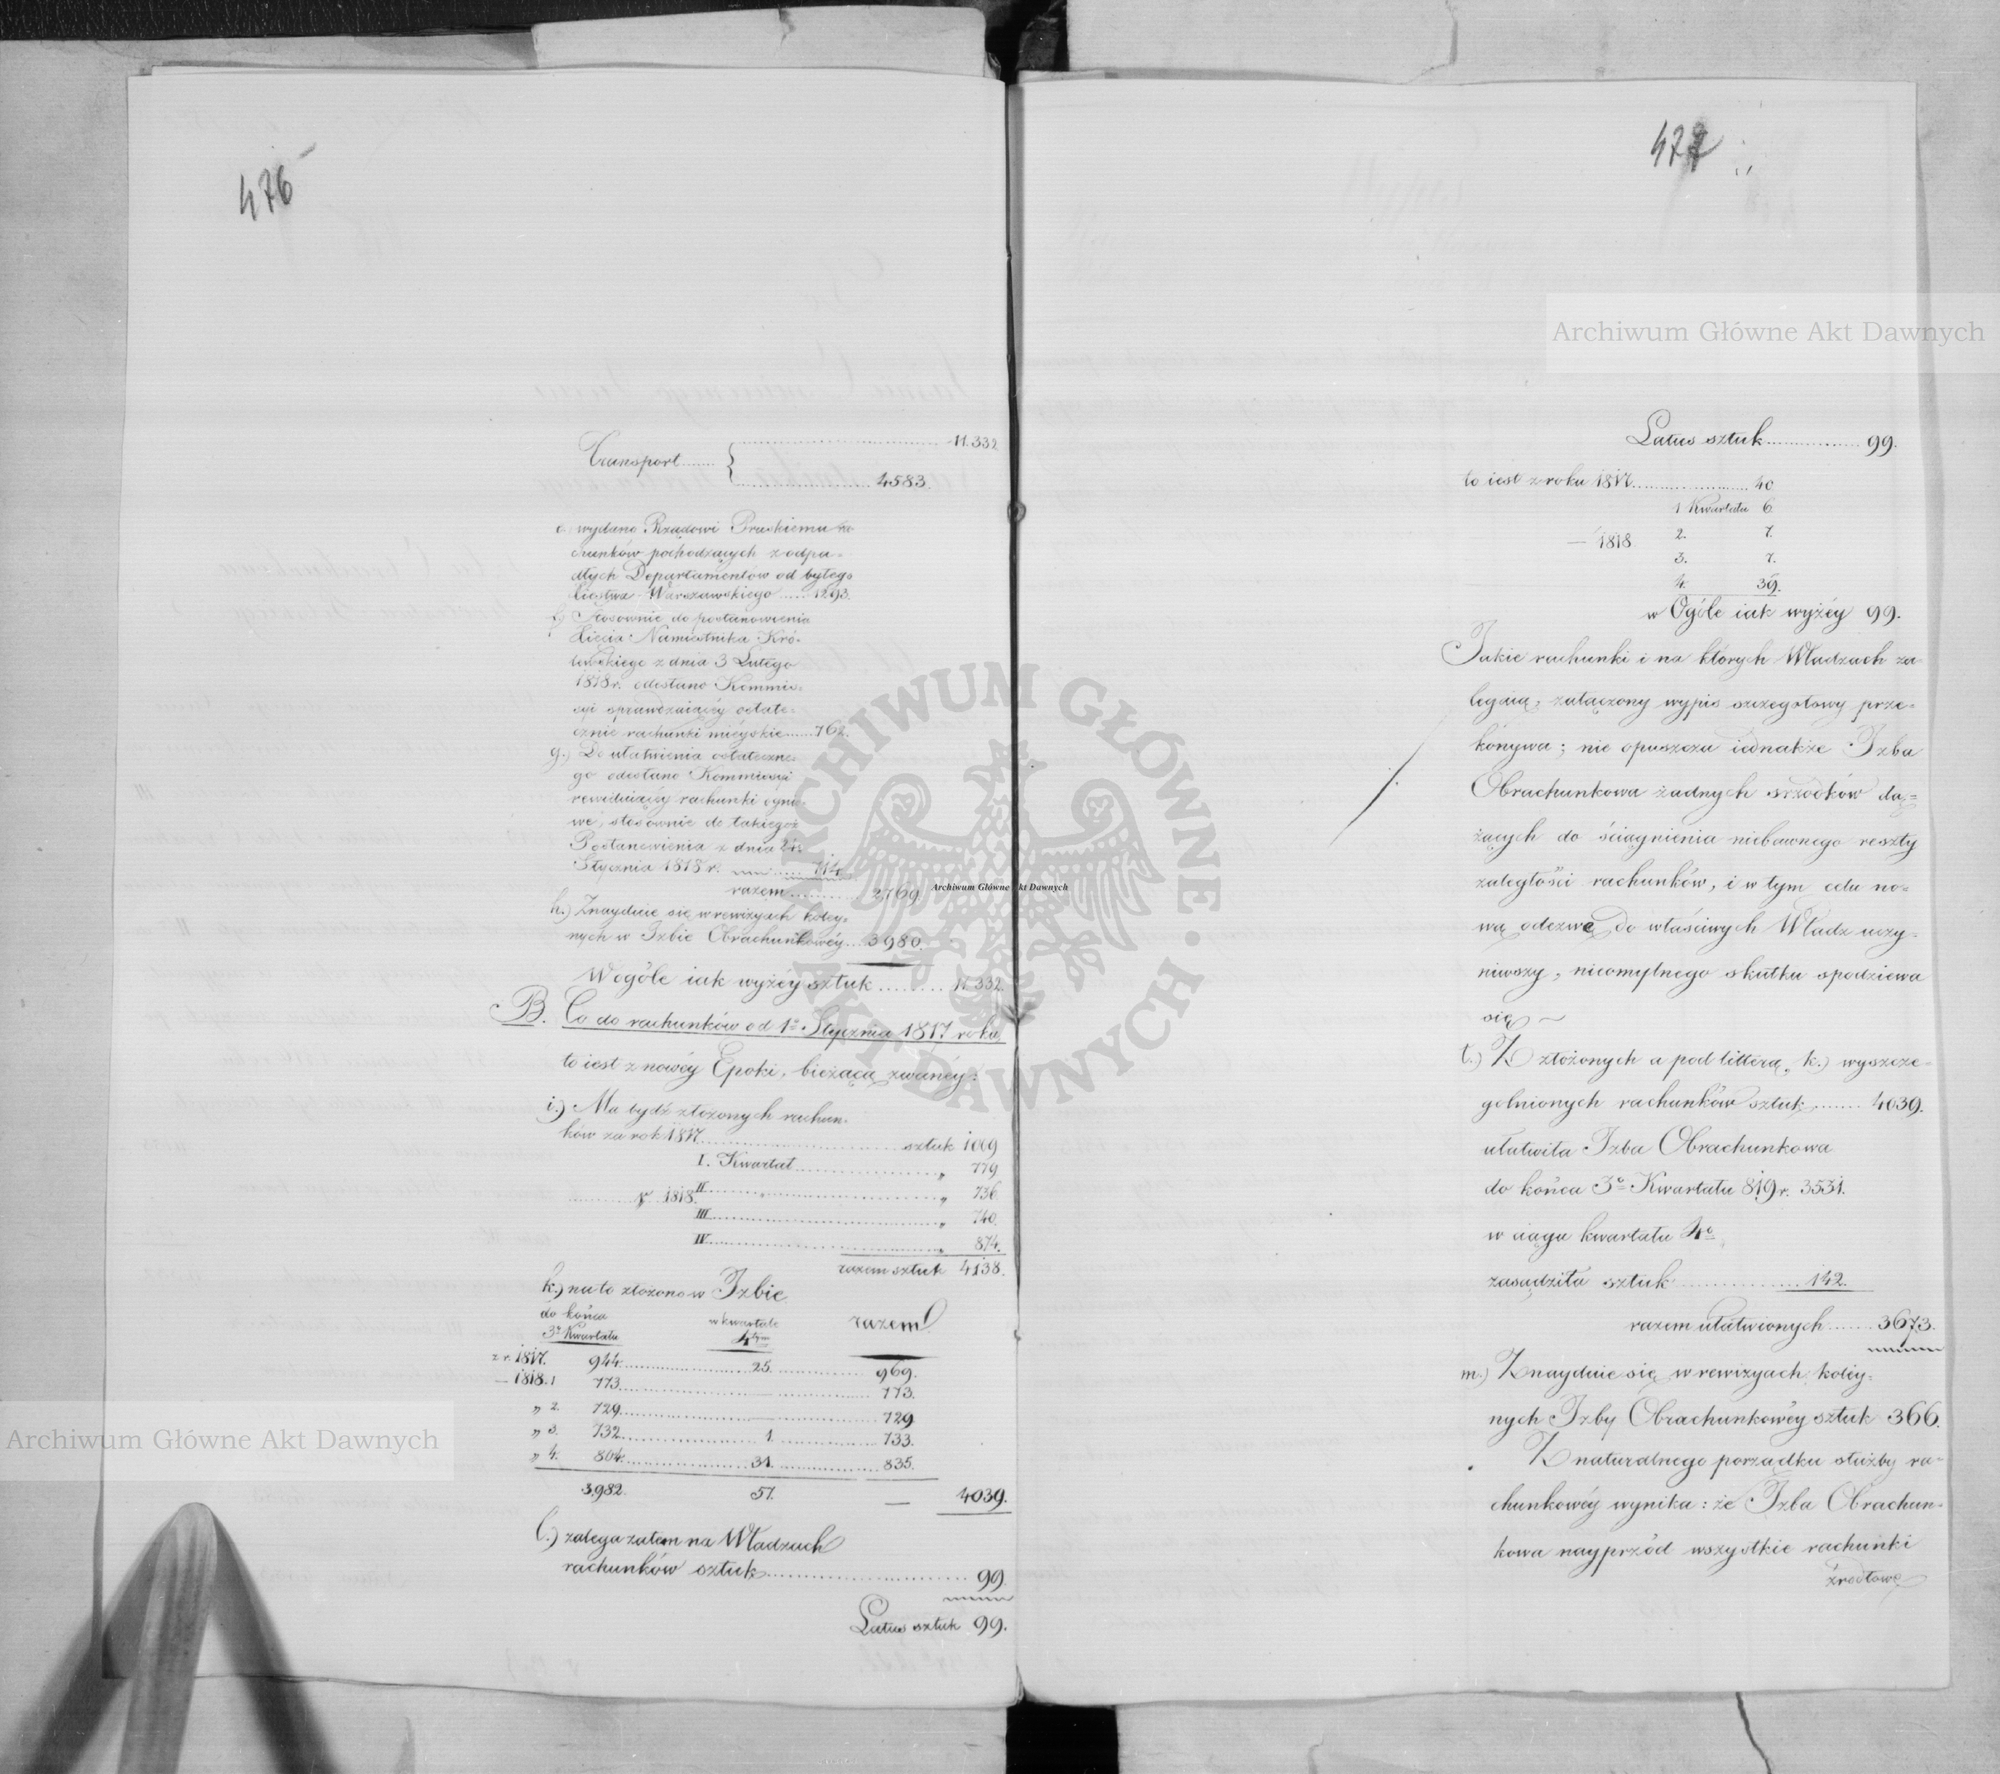 476
Transport ....... { ........................... 11.332
........................... 4583.
e. wydano Rządowi Pruskiemu ra-
chunków pochodzących z odpa-
dłych Departamentów od byłego
Xięstwa Warszawskiego ..... 1293.
f.) Stosownie do postanowienia
Xięcia Namiestnika Kró-
lewskiego z dnia 3 Lutego
1818 r. odesłano Kommis-
syi sprawdzaiącéy ostate-
cznie rachunki mieyskie ...... 762.
g.) Do ułatwienia ostateczne-
go odesłano Kommissyi
rewiduiącéy rachunki ognio-
we, stosownie do takiegoż
Postanowienia z dnia
Stycznia 1818 r. ........ 714.
razem ............ 2769.
h.) Znayduie się w rewizyach koley-
nych w Izbie Obrachunkowéy ... 3980.
Wogóle iak wyżéy sztuk ......... 11.332.
B. Co do rachunków od 1o Stycznia 1817 roku,
to iest z nowéy Epoki, bieżącą zwanéy:
i.) Ma bydź złożonych rachun-
ków za rok 1817 ........................... sztuk 1009
I. Kwartał ........................... „ 779
r 1818. II ........................... „ 736.
III ........................... „ 740.
IV ........................... „ 874.
razem sztuk 4138.
k.) na to złożono w Izbie
do końca w kwartale razem
3o Kwartału 4tym
z r. 1817. 944 ............ 25 ............ 969.
— 1818. 1 773 ............ — ............ 773.
„ 2. 729 ............ — ............ 729
„ 3. 732 ............ 1. ............ 733.
„ 4. 804 ............ 31. ............ 835.
3,982. 57. — 4039.
l.) zalega zatem na Władzach
rachunków sztuk ........................... 99
Latus sztuk 99.
477
Latus sztuk ............... 99.
to iest z roku 1817 ..................... 40
1 Kwartału 6
— 1818 2. 7.
3. 7.
4. 39.
w Ogóle iak wyżéy 99.
Jakie rachunki i na których Władzach za-
legaią, załączony wypis szczegołowy prze-
kónywa; nie opuszcza iednakże Izba
Obrachunkowa żadnych srzodków dą-
żących do ściągnienia niebawnego reszty
zaległości rachunków, i w tym celu no-
wą odezwę do właściwych Władz uczy-
niwszy, nieomylnego skutku spodziewa
się ~
ł.) Z złożonych a pod litterą k.) wyszcze-
gólnionych rachunków sztuk ....... 4039.
ułatwiła Izba Obrachunkowa
do końca 3o Kwartału 819 r. 3531.
w ciągu kwartału 4o
zasądziła sztuk ............... 142.
razem ułatwionych ....... 3673.
m.) Znayduie się w rewizyach koley-
nych Izby Obrachunkowéy sztuk 366.
Z naturalnego porządku służby ra-
chunkowéy wynika: że Izba Obrachun-
kowa nayprzód wszystkie rachunki
źrodłowe
Archiwum Główne Akt Dawnych
Archiwum Główne Akt Dawnych
Archiwum Główne Akt Dawnych
ARCHIWUM GŁÓWNE • AKT DAWNYCH •